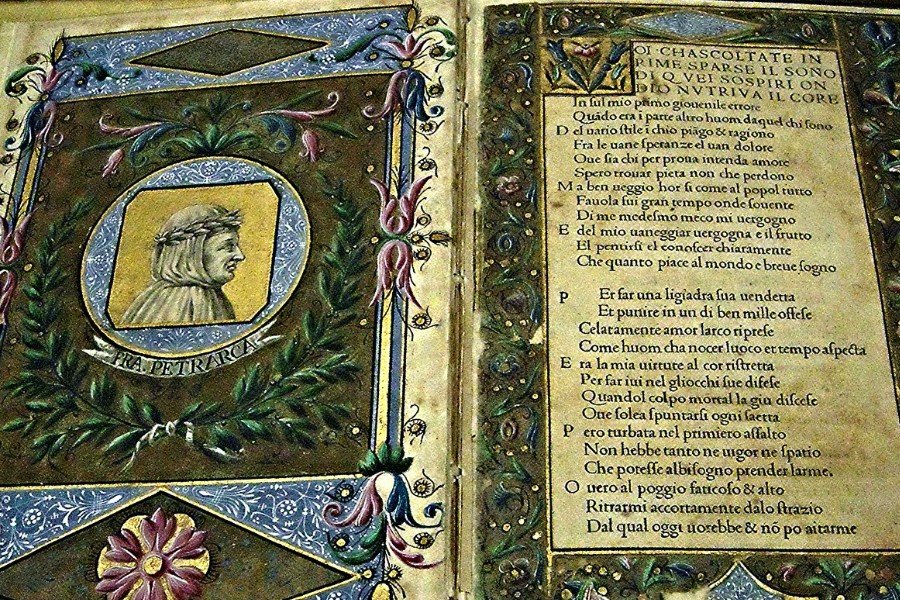 FRA. PETRARCA
VOI CHASCOLTATE IN
RIME SPARSE IL SONO
DI QVEI SOSPIRI ON
DIO NVTRIVA IL CORE
In sul mio primo giouenile errore
Quãdo era i parte altro huom da quel chi sono
Del uario stile i chio piãgo & ragiono
Fra le uane speranze el uan dolore
Oue sia chi per proua intenda amore
Spero trouar pieta non che perdono
Ma ben ueggio hor si come al popol tutto
Fauola fui gran tempo onde souente
Di me medesmo meco mi uergogno
E del mio uaneggiar uergogna e il frutto
El pentirsi el conoscer chiaramente
Che quanto piace al mondo e breue sogno
PEr far una ligiadra sua uendetta
Et punire in un di ben mille offese
Celatamente amor larco riprese
Come huom cha nocer luoco et tempo aspecta
Era la mia uirtute al cor ristretta
Per far iui nel gliocchi sue difese
Quandol colpo mortal la giu discese
Oue solea spuntarsi ogni saetta
Pero turbata nel primiero assalto
Non hebbe tanto ne uigor ne spatio
Che potesse al bisogno prender larme.
Ouero al poggio faticoso & alto
Ritrarmi accortamente dalo strazio
Dal qual oggi uorebbe & nõ po aitarme